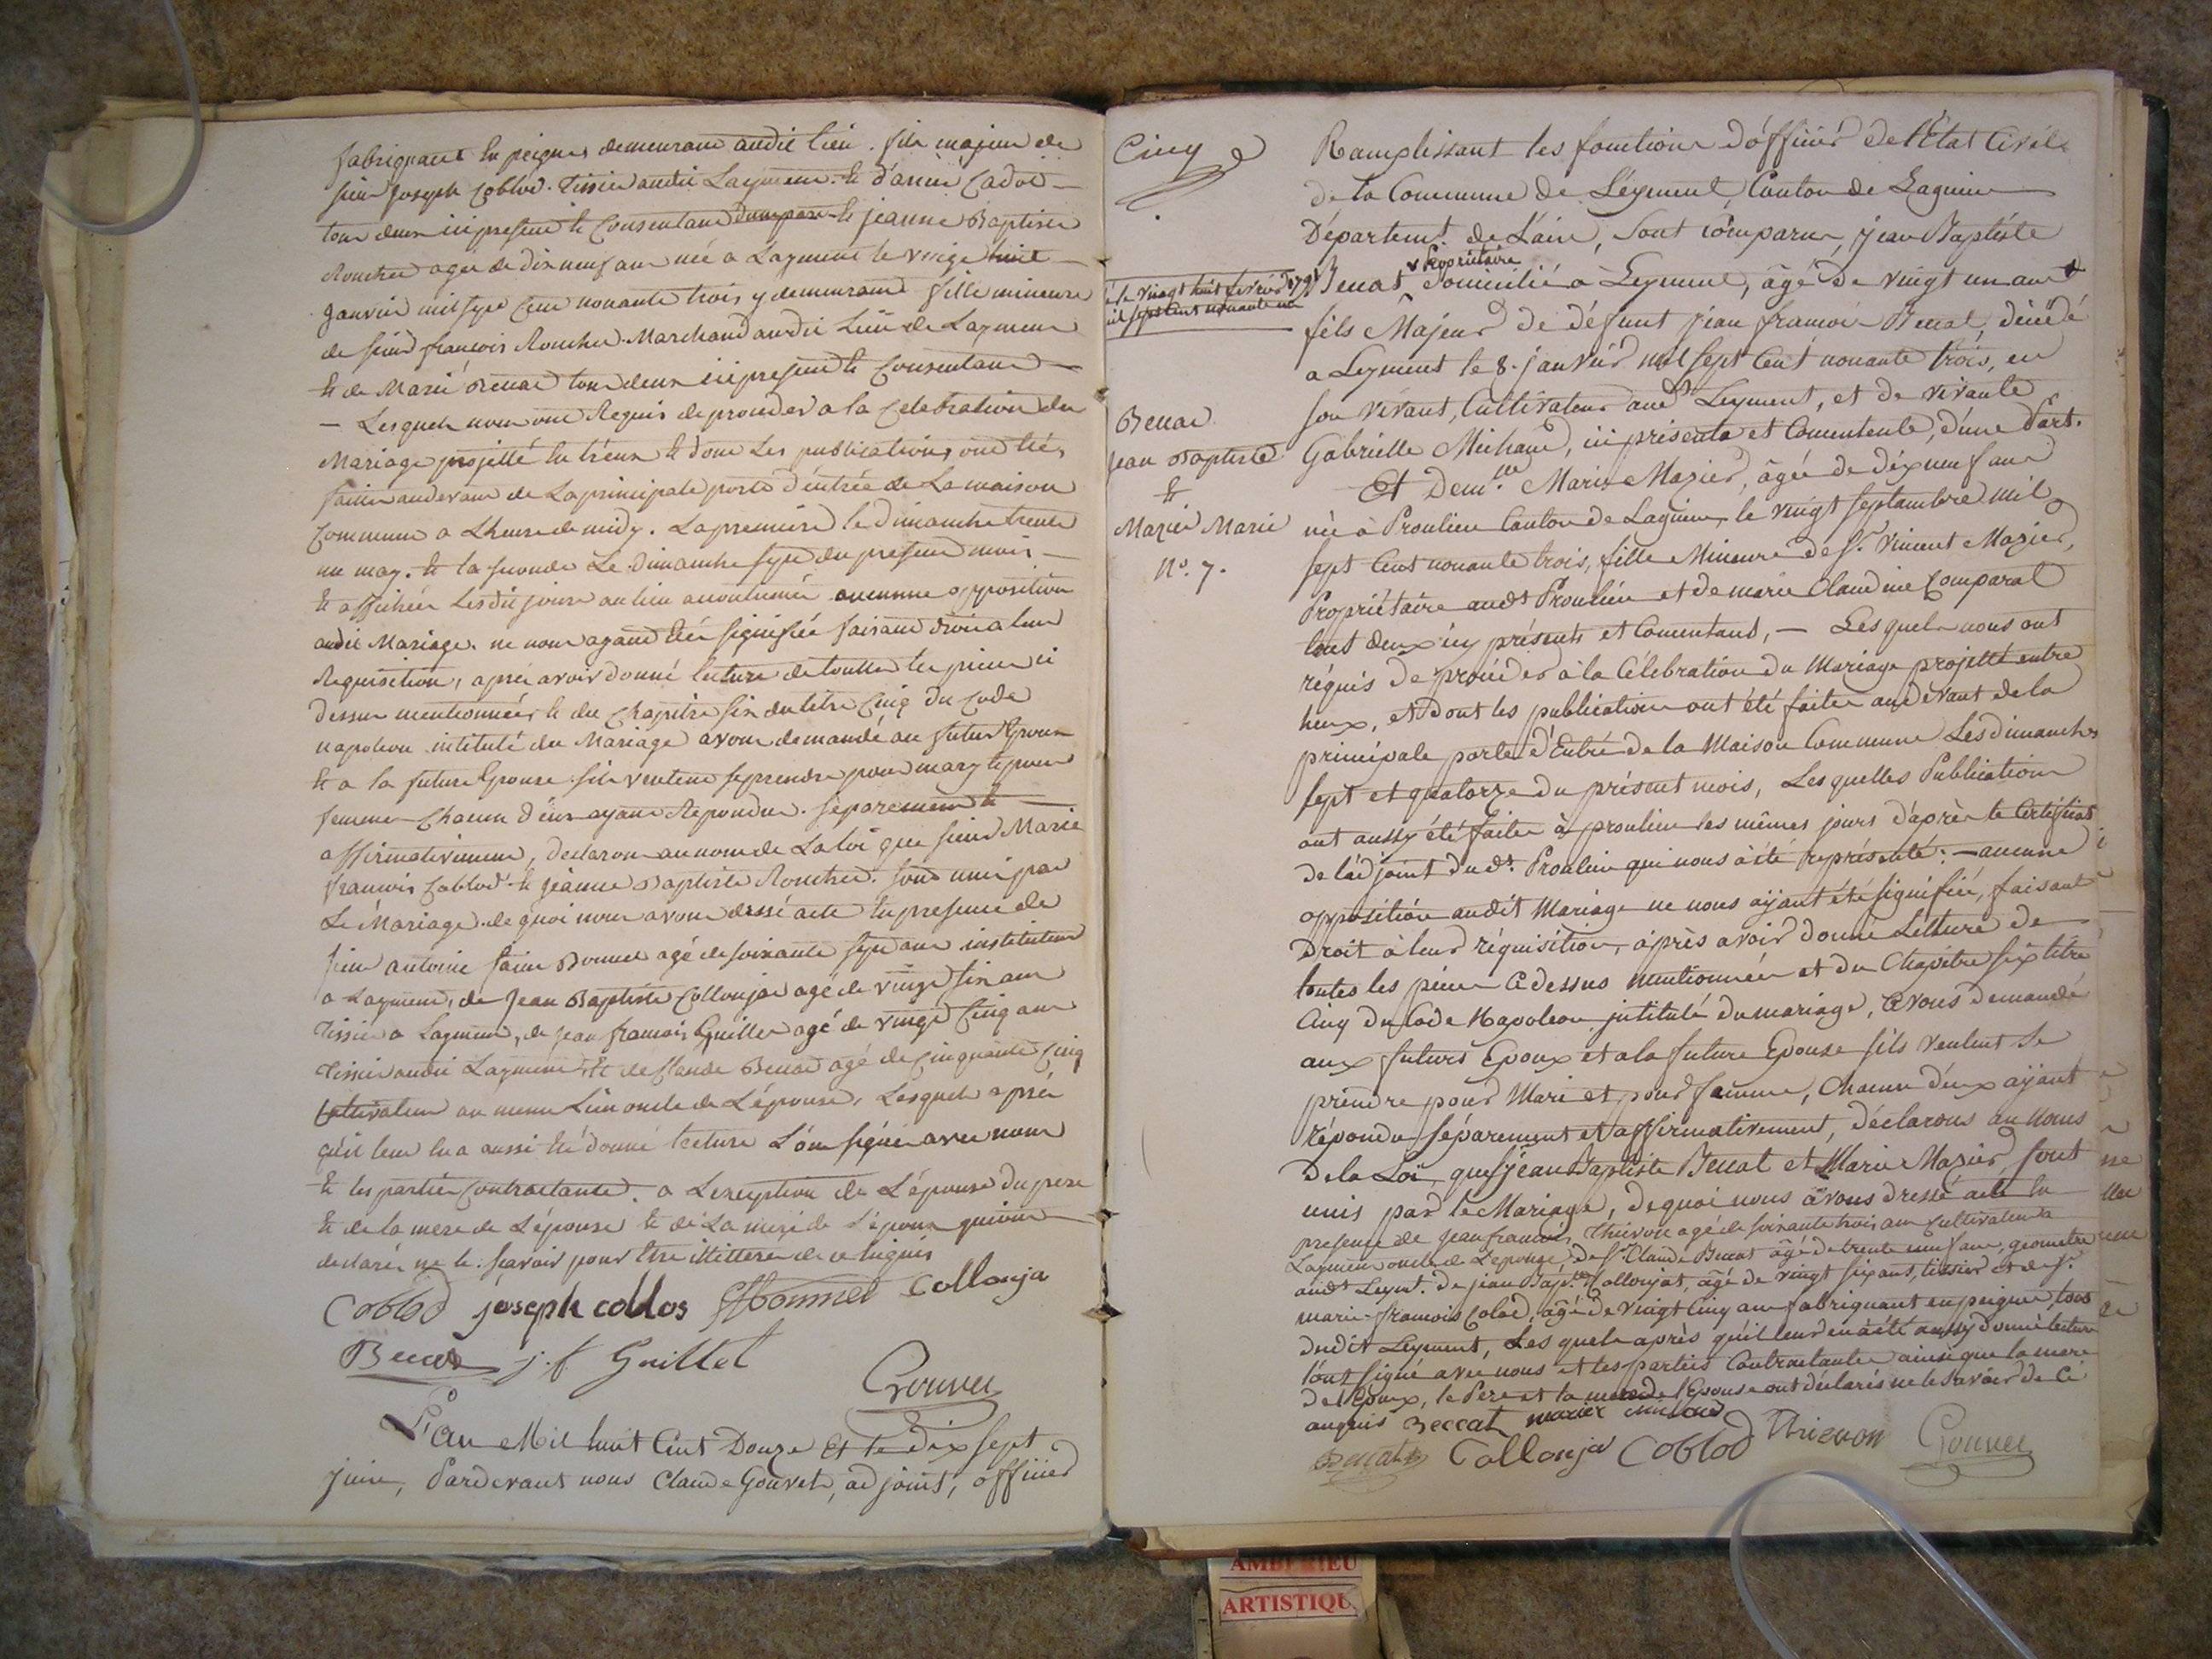 fabriquant en peignes demeurant audit lieu. fils majeur de
sieur Joseph Coblod. Tissier audit Laymene. et d'anne Cadot
tous deux ici present et Consentant d'une part et jeanne Baptiste
Roucher agée de dix neuf ans née a Laymene le vingt huit
Janvier mil sept Cent nonante trois y demeurant fille mineure
de sieur françois Roucher Marchand audit Lieu de Laymene
et de Marie Benat tous deux ici present et Consentant
— Lesquels nous ont Requis de proceder a la Celebration du
Mariage projetté entreux et dont Les publications ont étés
faites audevant de La principale porte d'entrée de La maison
Commune a Lheure de midy. La premiere le dimanche trente
un may. et la seconde Le dimanche sept du present mois
et affichée Lesdit jours au lieu accoutumée aucunne opposition
audit Mariage. ne nous ayant été signifiée faisant droit a leur
Requisition, après avoir donné lecture de touttes les pieces ci
dessus mentionnées et du Chapitre six du titre Cinq du Code
napoleon intitulé du Mariage avons demandé au futur Epoux
et a la future Epouse s'ils veulent se prendre pour mary et pour
femme Chacun d'eux ayant Repondu. séparement et
affirmativement, declarons au nom de La loi que sieur Marie
françois Coblod et jeanne Baptiste Roucher. sont unis par
Le Mariage. de quoi nous avons dressé acte en presence de
sieur antoine faine Bonnet agé de soixante sept ans instituteur
a Laymene, de Jean Baptiste Collonjat agé de vingt six ans
Tissier a Laymene, de Jean françois Guillet agé de vingt Cinq ans
Tissier audit Laymene, et de Claude Benat agé de Cinquante Cinq
Cultivateur au meme Lieu oncle de L'épouse, Lesquels après
qu'il leur en a aussi été donné lecture L'ont signée avec nous
et les parties Contractantes. a L'exception de L'épouse du pere
et de la mere de L'épouse et de La mere de L'époux qui ont
declarés ne le sçavoir pour être illitterés de ce enquis
Coblod joseph coblos Bonnet Collonja
Benat j. f. Guillet
Gouvet
L'an Mil huit Cent Douze Et le dix sept
juin, Pardevant nous Claude Gouvet, adjoint, officier
Cinq
Ramplissant les fonctions d'officier de l'État Civil
de la Commune de Leyment, Canton de Lagnieu
Départemt. de L'ain, sont comparus, jean Baptiste
Propriétaire
Benat, Domicilié a Leyment, âgé de vingt un ans
né le vingt huit fevrier 1791
mil sept Cent nonante un
fils Majeur de défunt jean françois Benat, décédé
a Leyment le 8. janvier mil sept Cent nonante trois, en
son vivant, Cultivateur aud. Leyment, et de vivante
Gabrielle Michaud, ici présente et Consentente, d'une Part.
Benat
Jean Baptiste
et
Mazier Marie
N.º 7.
Et Dem.lle Marie Mazier, âgée de dix neuf ans
née à Proulieu Canton de Lagnieu, le vingt septambre mil
sept Cent nonante trois, fille Mineure de Sr. Vincent Mazier,
Propriétaire audt Proulieu et de marie Claudine Comparat
tous deux icy présents et Consentants, — Lesquels nous ont
réquis de procéder à la Célebration du Mariage projetté entre
heux, et dont les publications ont été faites audevant de la
principale porte d'Entré de la Maison Commune Les dimanches
sept et quatorze du présent mois, Lesquelles Publications
ont aussy été faites à proulieu les mêmes jours d'après le Certificat
de l'adjoint dudt. Proulieu qui nous a été représenté: — aucunne
opposition audit Mariage ne nous aÿant été signifiée, faisant
Droit à leur réquisition, après avoir donné Letture de
toutes les pieces Cidessus mentionnées et du Chapitre six titre
Cinq du Code Napoleon, intitulé du mariage, avons demandé
aux futurs Epoux et a la future Epouse s'ils veulent se
prendre pour Mari et pour femme, Chacun d'eux aÿant
répondu séparement et affirmativement, déclarons au Noms
de la Loi, que jean Baptiste Benat et Marie Mazier, sont
unis par le Mariage, de quoi nous avons dressé acte en
presence de jean francois Thievon agé de soixante trois ans Cultivateur a
Laymene oncle de L'epouse, de Sr Claude Benat âgé de trente neuf ans, geometre
audt Leymt. de jean Bapt.te Collonjat, âgé de vingt six ans, tissier et de Sr.
marie-francois Colod, âgé de vingt Cinq ans fabriquant en peignes, tous
dudit Leyment, Lesquels après qu'il leur en à été aussy donné lecture
l'ont signé avec nous et les parties Contractantes ainsi que la mere
de l'Epoux, le Pere et la mere de l'Epouse ont déclarés ne le savoir de Ce
anquis Beccat marier michaud
Benat Collonja Coblod Thievon Gouvet
AMBERIEU
ARTISTIQU